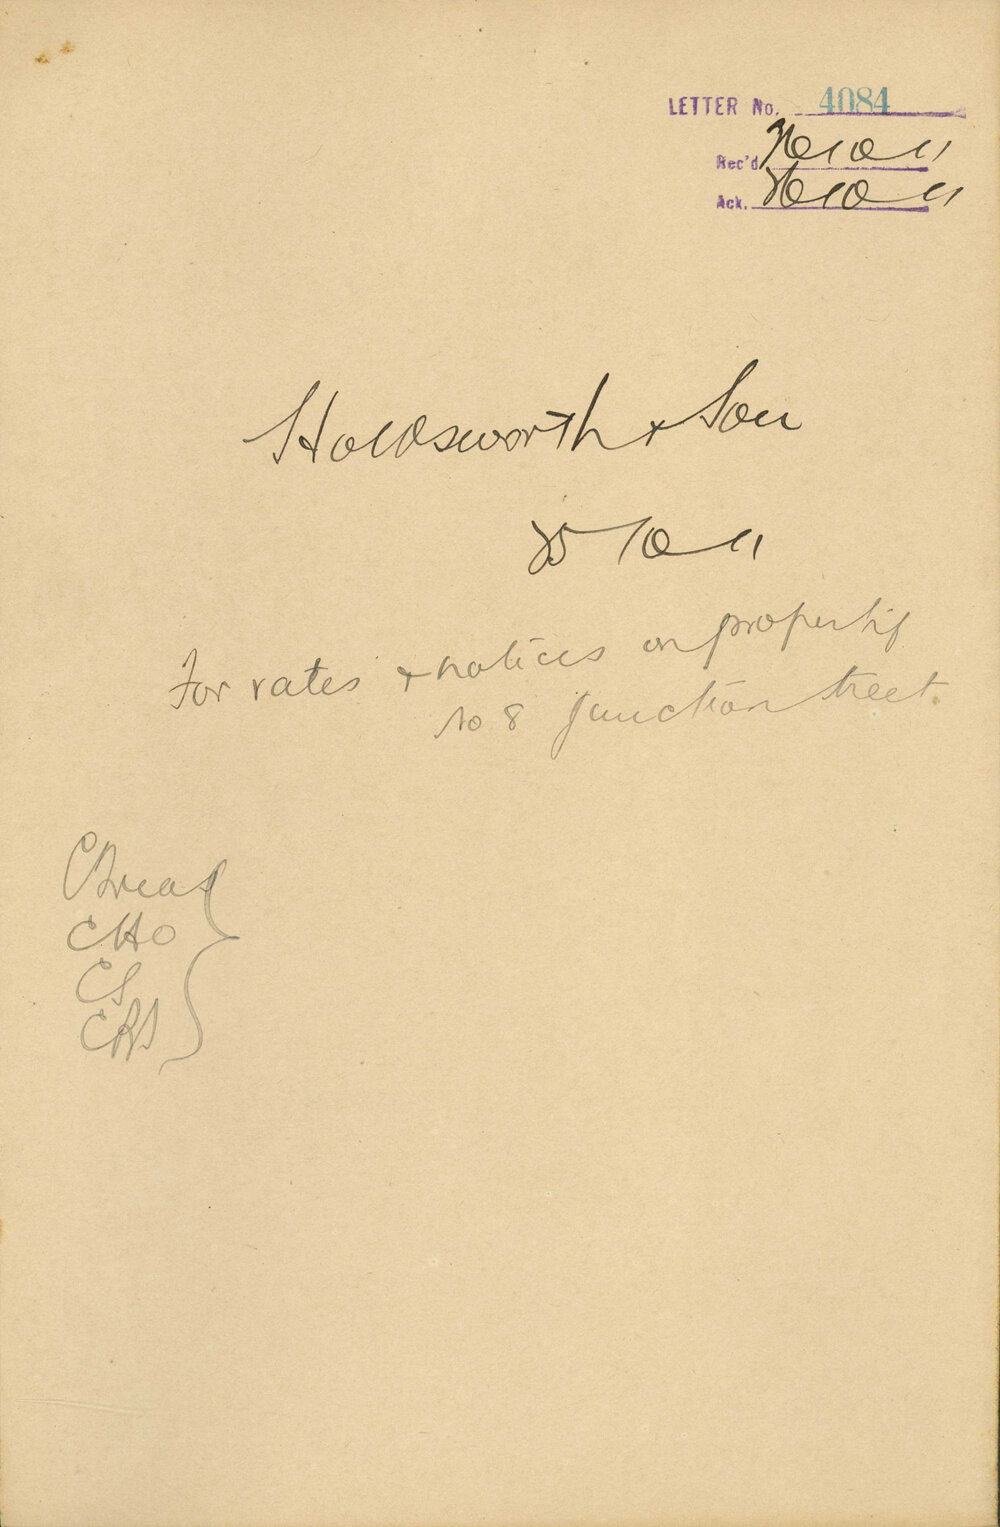 LETTER No. 4084
Rec'd 26 10 11
Ack. 26 10 11
Holdsworth & Son
25 10 11
For rates & notices on property
No 8 Junction Street
CTreas
CHO
CS